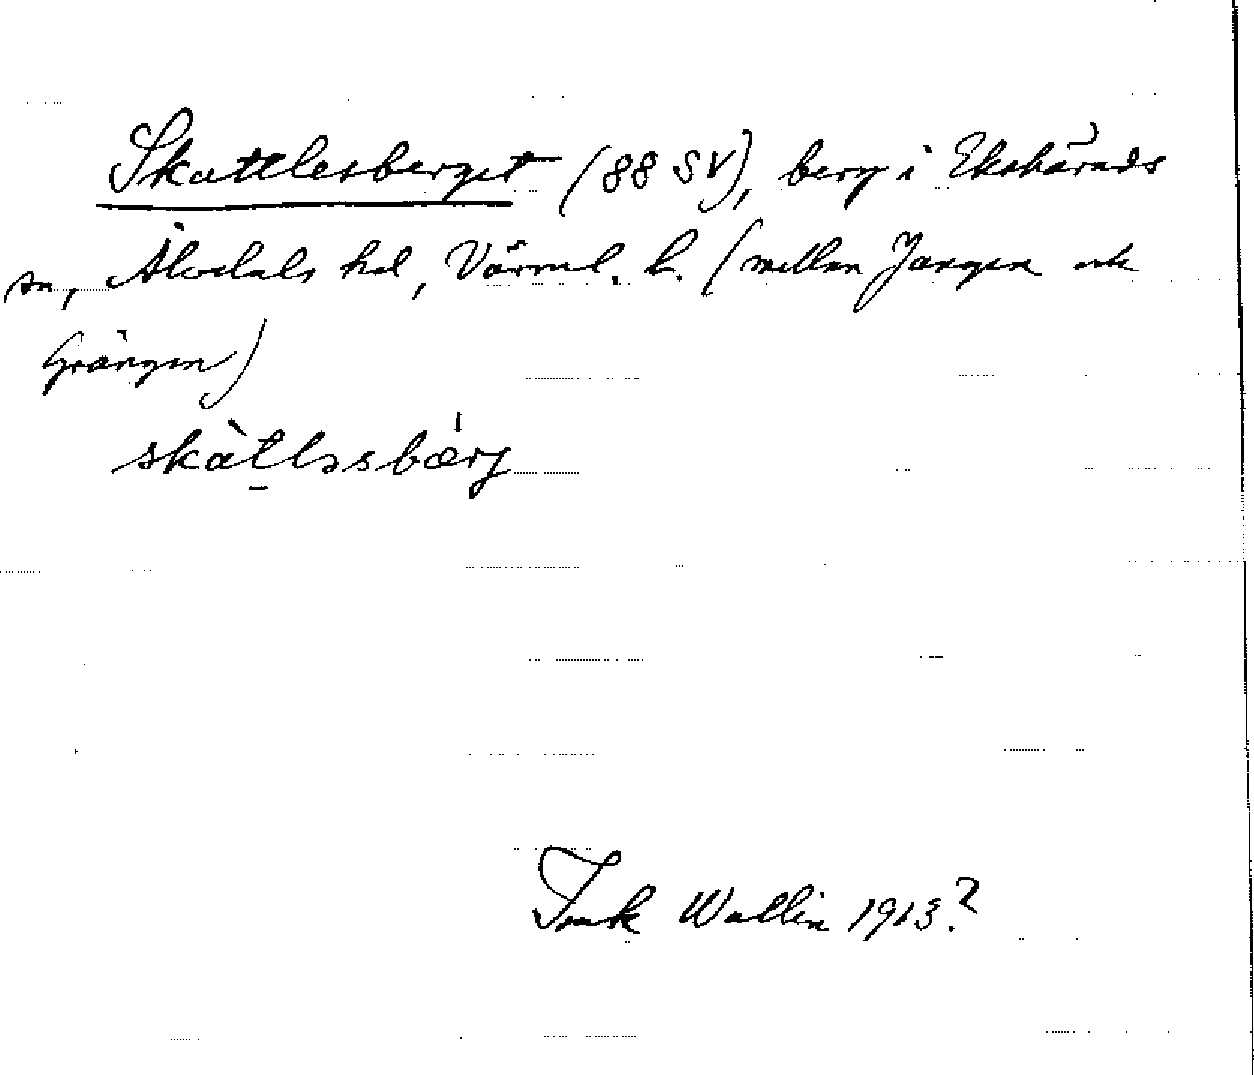 Skattlesberget (88 SV), berg i Ekshärads
sn, Älvdals hd, Värml. l. (mellan Jangen och
Grängen)
skàtləsbærj
Wallin 1913?